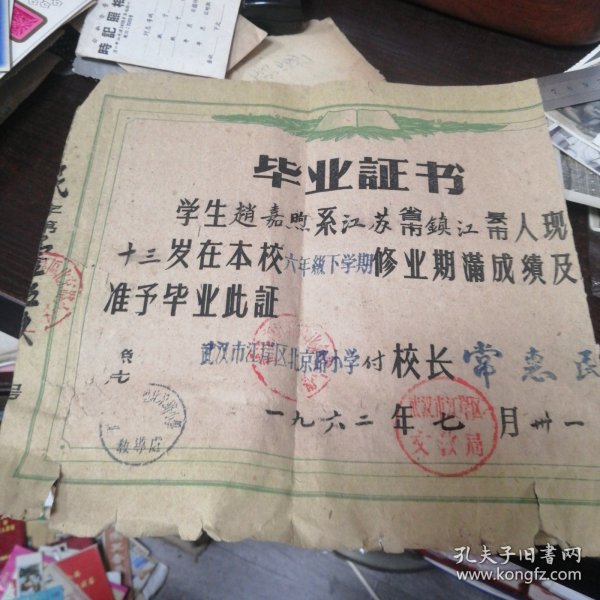 時記照相
毕业証书
学生趙嘉煦系江苏省市鎮江县市人現
十三岁在本校六年級下学期修业期滿成績及
准予毕业此証
武汉市江岸区北京路小学付校长常惠民
一九六二年七月卅一
武汉市江岸区
文教局
教導处
孔夫子旧书网
www.kongfz.com